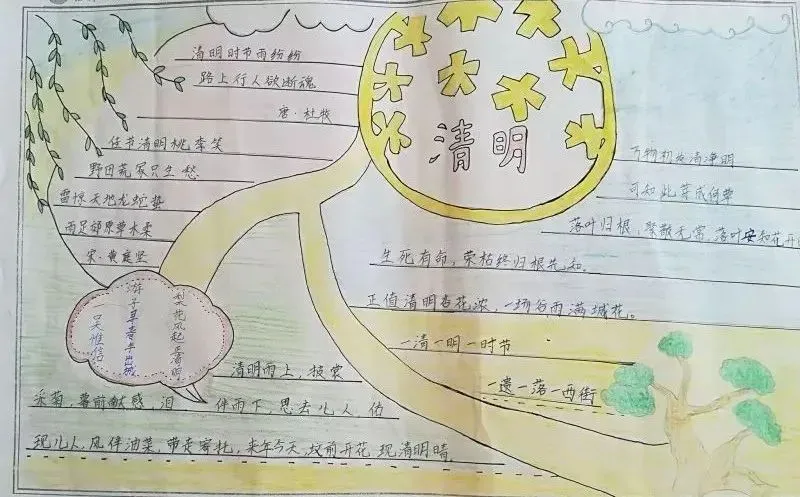 清明时节雨纷纷
路上行人欲断魂
唐·杜牧
佳节清明桃李笑
野田荒冢只生愁
雷惊天地龙蛇蛰
雨足郊原草木柔
宋·黄庭坚
清明
万物初发清净明
可如此草成何
落叶归根，聚散无常，落叶安知花开
生死有命，荣枯终归根先知，
正值清明杏花浓，一场谷雨满城花。
一清一明一时节
一遗一落一西街
梨花风起正清明
游子寻春半出城
吴惟信
清明雨上，披裳
采菊，暮前献感，泪 伴雨下，思去儿人，估
现儿人，风伴油菜，带走寄托，来年今天，坟前开花 现清明晴，